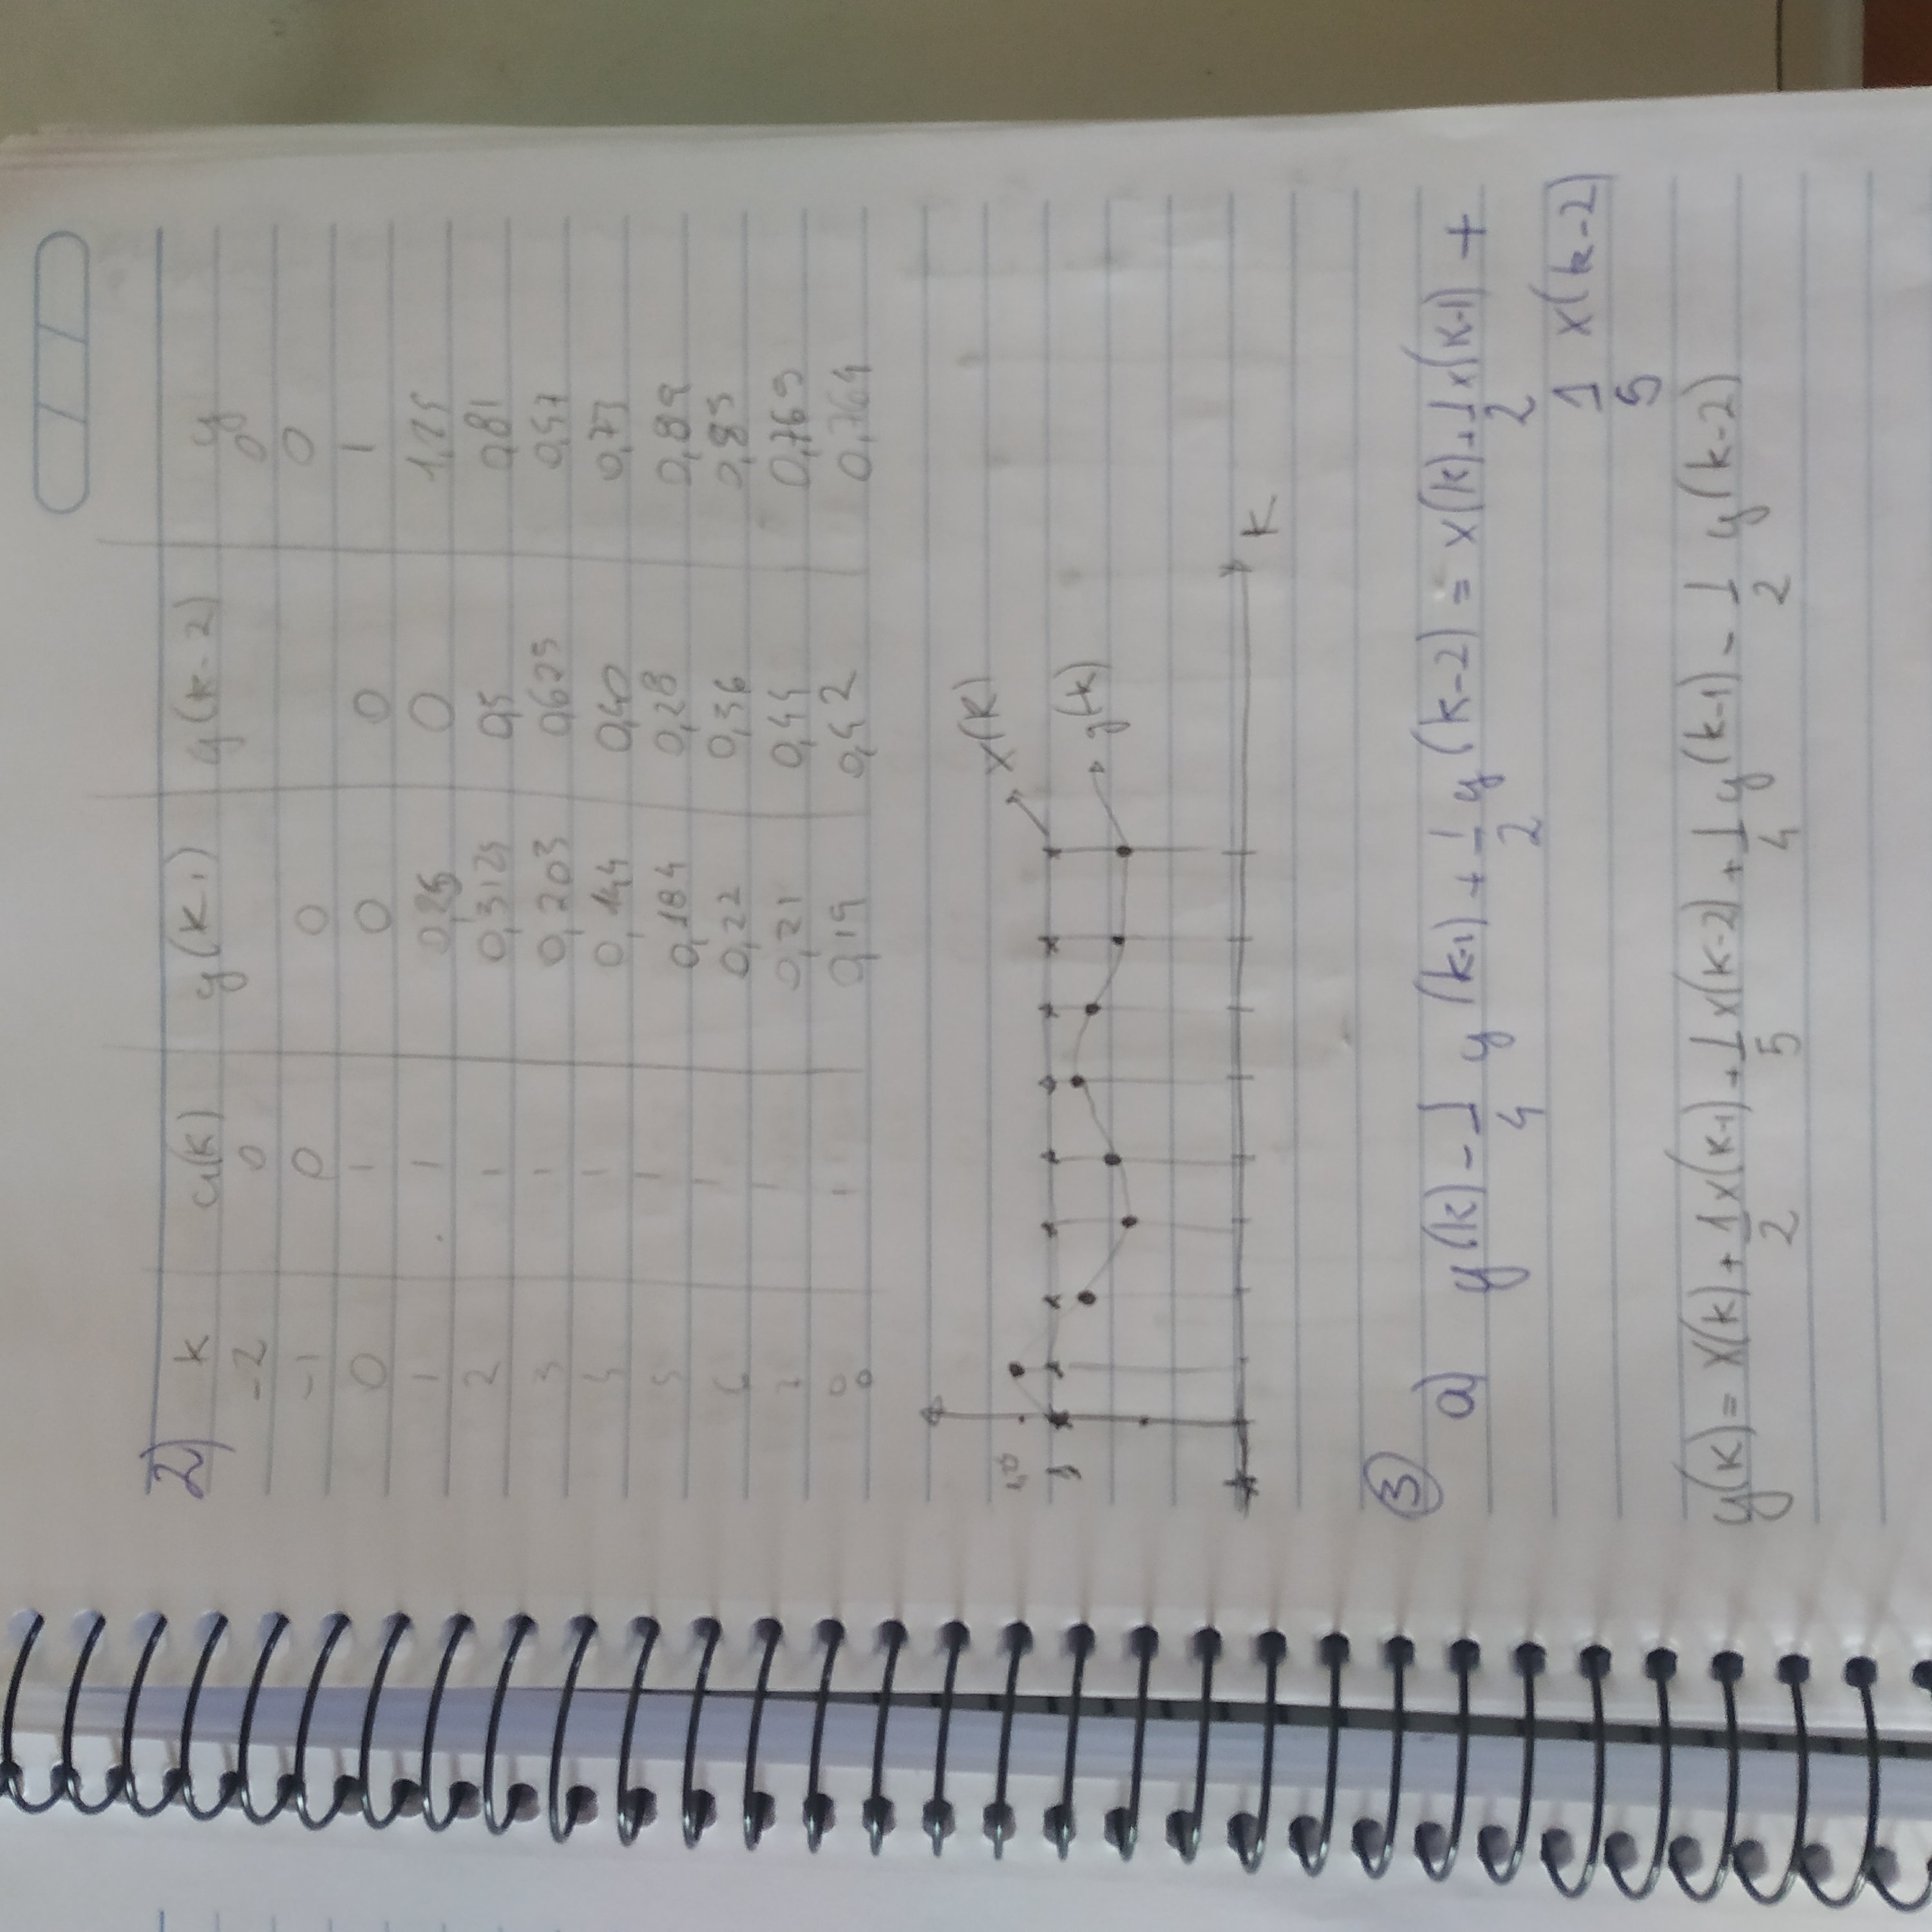 2) k u(k) y(k-1) y(k-2) y
-2 0 0
-1 0 0 0
0 1 0 0 1
1 1 0,25 0 1,25
2 1 0,3125 0,5 0,81
3 1 0,203 0,625 0,57
4 1 0,144 0,40 0,73
5 1 0,184 0,28 0,89
6 1 0,22 0,36 0,85
7 1 0,21 0,44 0,769
8 1 0,19 0,42 0,764
x(k)
1
y(k)
k
3
a) y(k) - 1/4 y(k-1) + 1/2 y(k-2) = x(k) + 1/2 x(k-1) +
1/5 x(k-2)
y(k) = x(k) + 1/2 x(k-1) + 1/5 x(k-2) + 1/4 y(k-1) - 1/2 y(k-2)